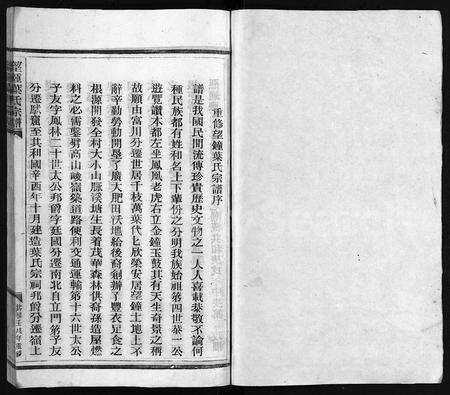 重修望鐘葉氏宗譜序
譜是我國民間流傳珍貴歷史文物之一人人喜載恭敬不論何
種民族都有姓和名上下輩份之分明我族始祖第四世恭一公
遊覽讚本都左坐鳳凰老虎右立金鐘玉鼓其有天生奇景之稱
故願由富川分遷世居千枝萬葉代匕欣榮安居望鐘土地上不
辭辛勤勞動開墾了廣大肥田沃地給後裔創辦了豐衣足食之
根源開發全村大小山脈溪塘生長着茂華森林供裔孫造屋燃
料之必需鑿劈高山峻嶺築道路便利交通運輸第十六世太公
子友字鳳林二十世太公兆爵字廷國分遷南北自立門第子友
分遷㽏窟至其利國辛酉年十月建造葉氏宗祠兆爵分遷嶺上
望鐘葉氏宗譜